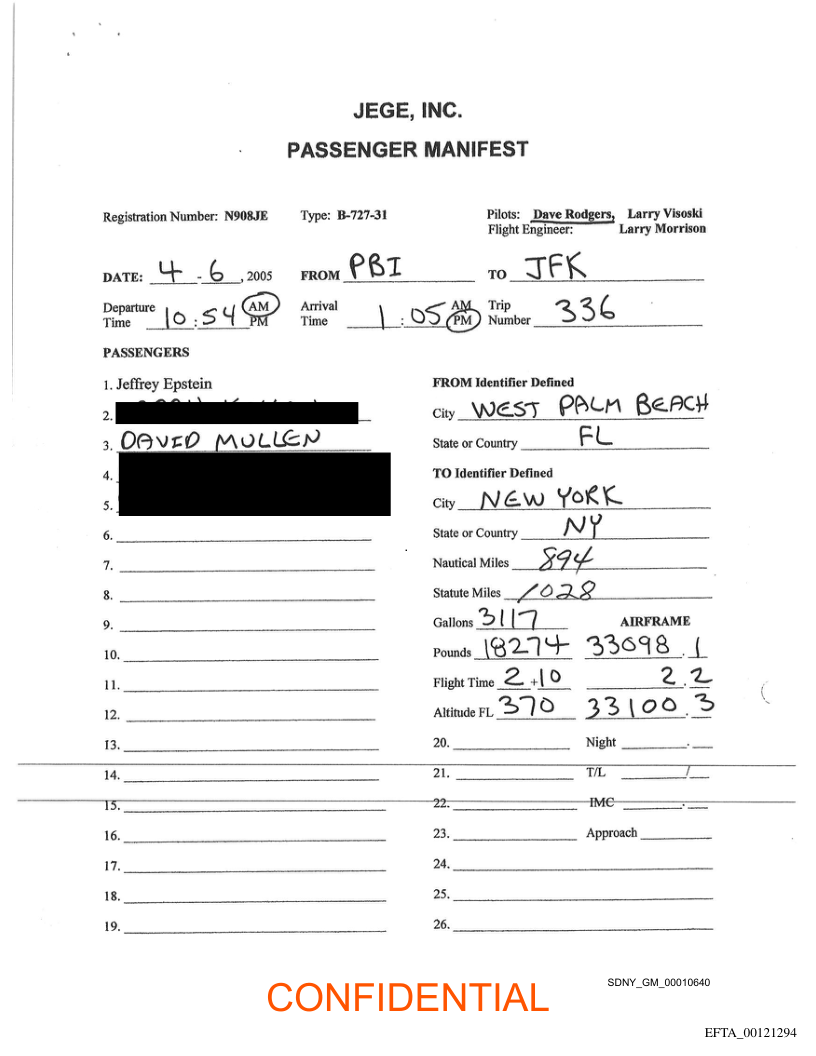 JEGE, INC.
PASSENGER MANIFEST
Registration Number: N908JE Type: B-727-31 Pilots: Dave Rodgers, Larry Visoski
Flight Engineer: Larry Morrison
DATE: 4 - 6, 2005 FROM PBI TO JFK
Departure Time 10:54 AM PM Arrival Time 1:05 AM PM Trip Number 336
PASSENGERS
1. Jeffrey Epstein FROM Identifier Defined
2. City WEST PALM BEACH
3. DAVID MULLEN State or Country FL
4. TO Identifier Defined
5. City NEW YORK
6. State or Country NY
7. Nautical Miles 894
8. Statute Miles 1028
9. Gallons 3117 AIRFRAME
10. Pounds 18274 33098.1
11. Flight Time 2+10 2.2
12. Altitude FL 370 33100.3
13. 20. Night .
14. 21. T/L /
15. 22. IMC .
16. 23. Approach
17. 24.
18. 25.
19. 26.
SDNY_GM_00010640
CONFIDENTIAL
EFTA_00121294